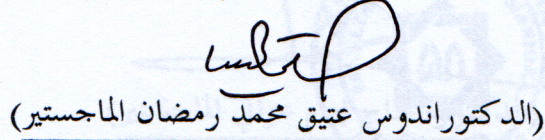 (الدكتوراندوس عتيق محمد رمضان الماجستير)